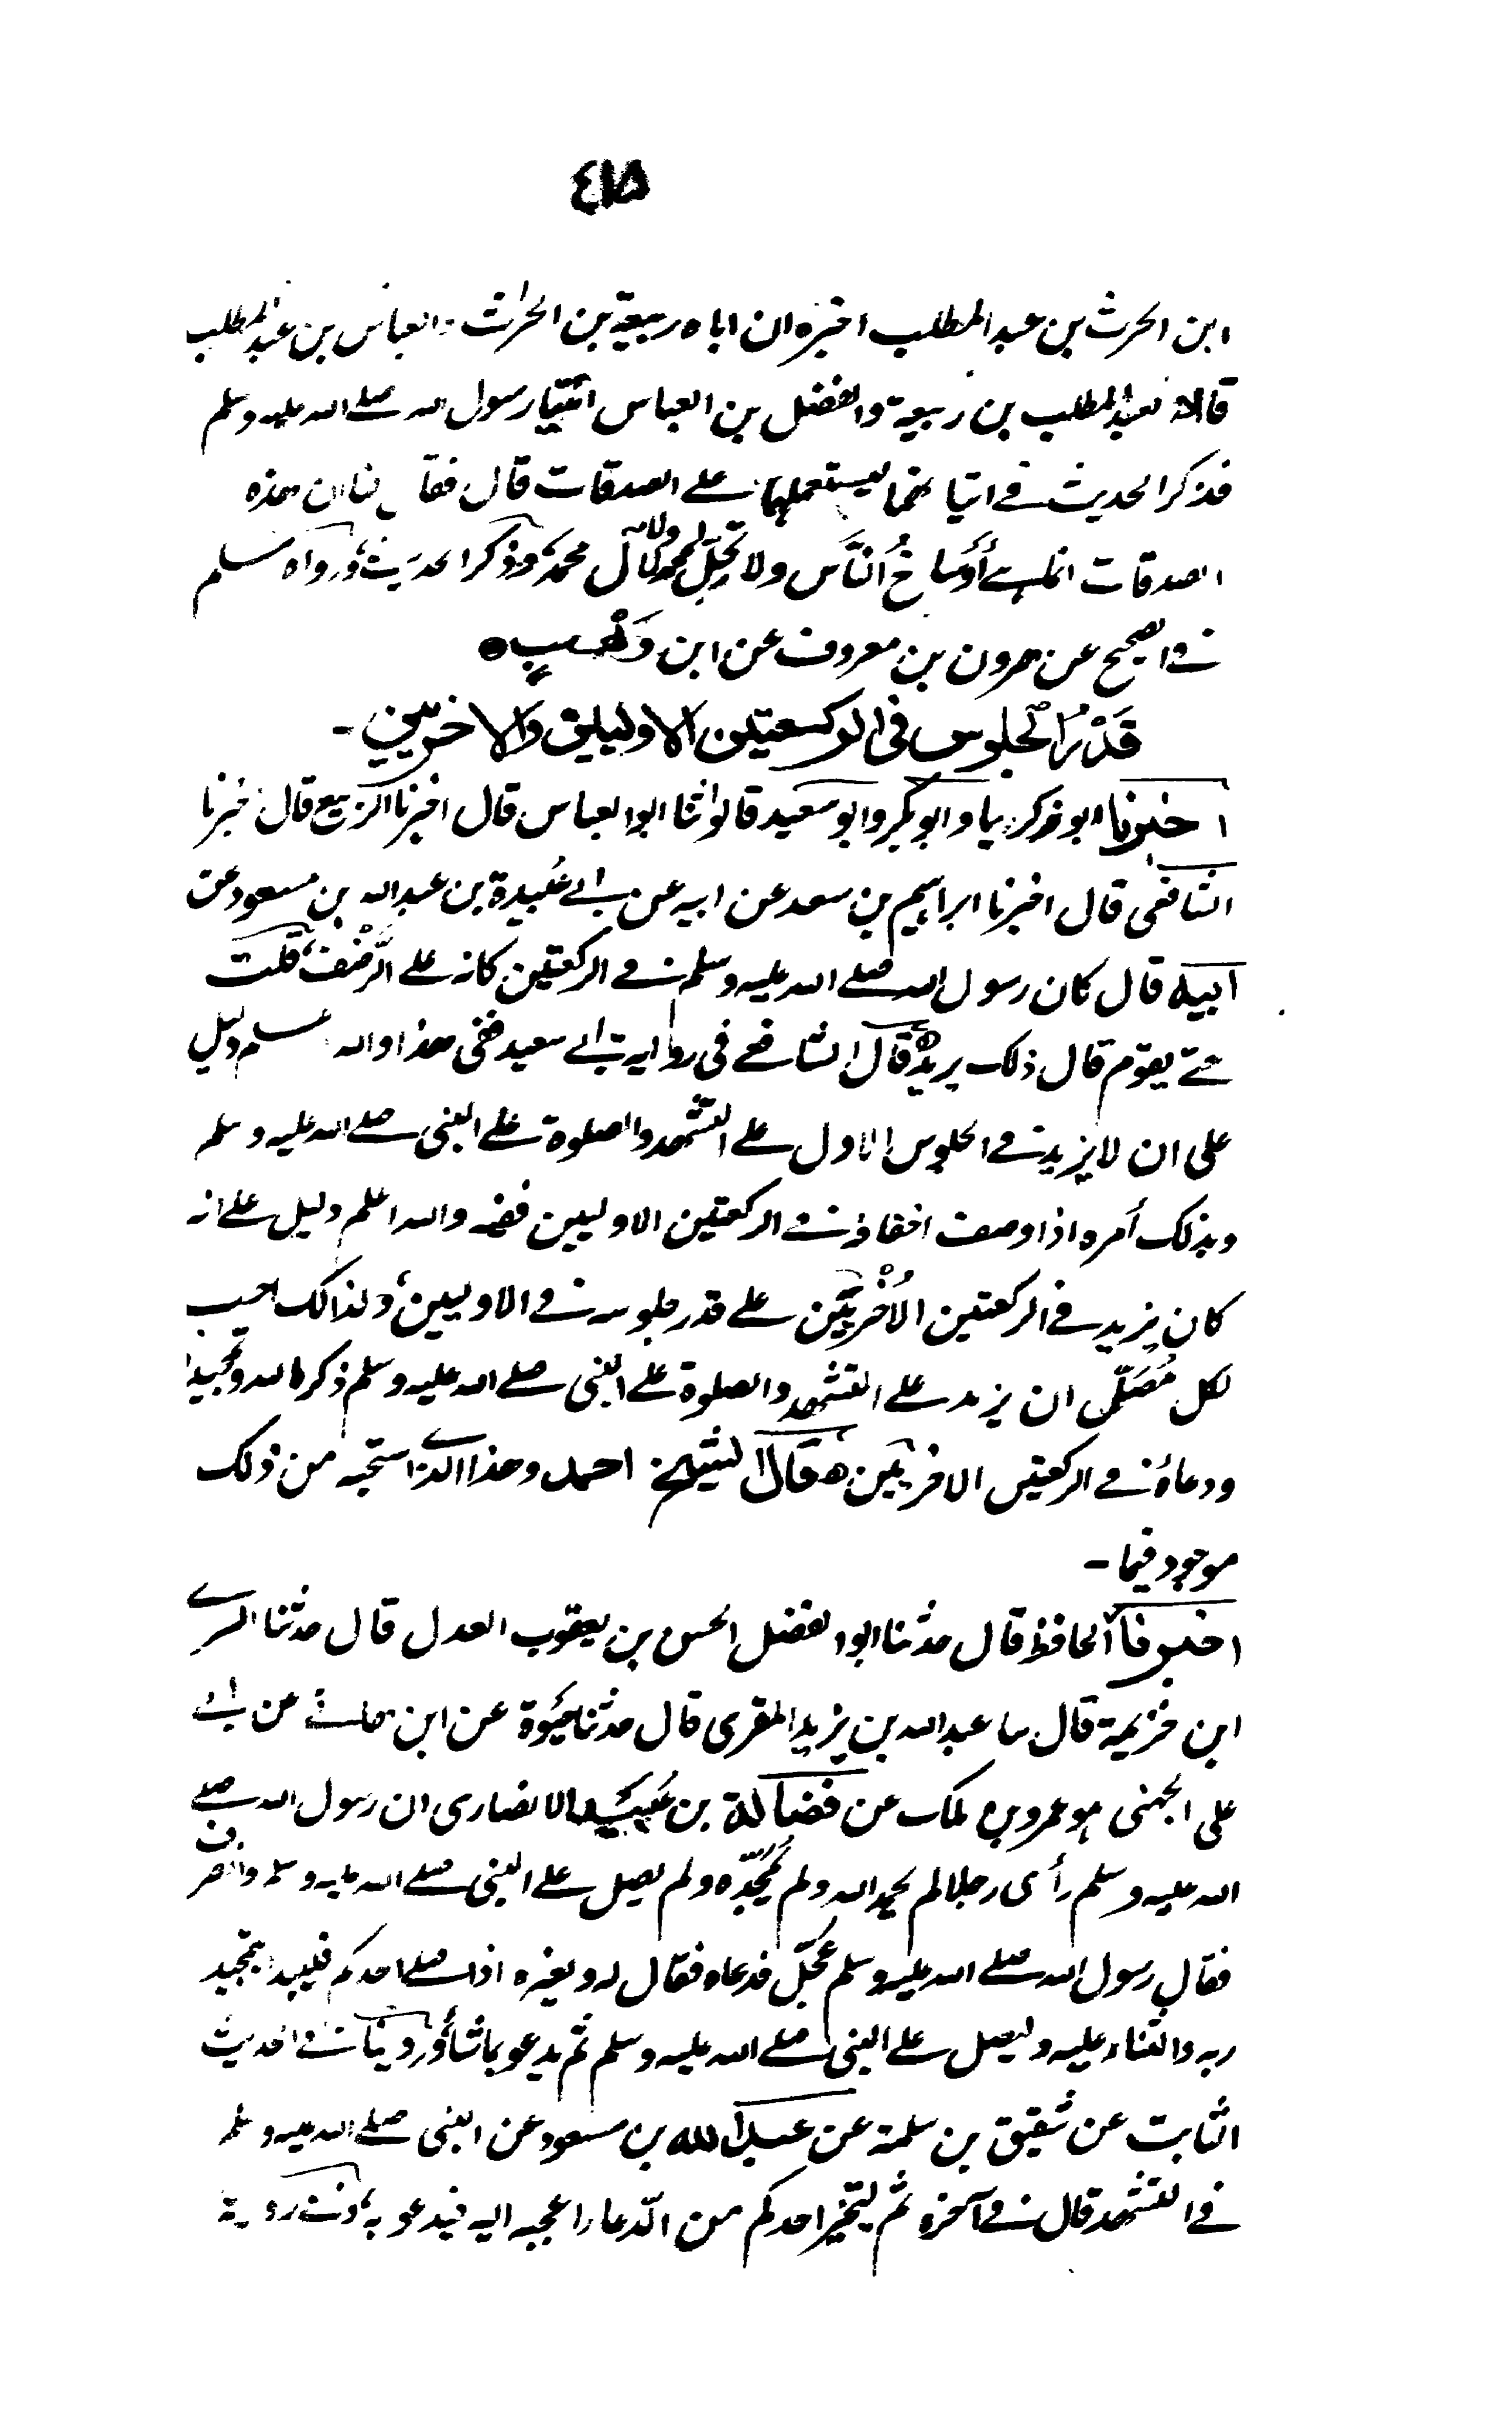 ٤١٥
ابن الحرث بن عبد المطلب اخبره ان اباه ربيعة بن الحراث والعباس بن عبد المطلب
قالا لعبد المطلب بن ربيعة والفضل بن العباس ائتيا رسول الله صلى الله عليه وسلم
فذكر الحديث فى اتيانهما ليستعملهما على الصدقات قال فقال لنا ان هذه
الصدقات انما هى أَوْسَاخُ النَّاس ولا تَحِلّ لمحمد ولا لآل محمد وذكر الحديث، ورواه مسلم
فى الصحيح عن هرون بن معروف عن ابن وَهْبٍ ه
قَدْرُ الْجلوس فى الركعتين الاوليين والاخريين -
اخبرنا ابو زكريا وابو بكر وابو سعيد قالوا ثنا ابو العباس قال اخبرنا الربيع قال اخبرنا
الشافعى قال اخبرنا ابراهيم بن سعد عن ابيه عن ابى عُبيدة بن عبد الله بن مسعود عن
ابيه قال كان رسول الله صلى الله عليه وسلم فى الركعتين كانه على الرَّضْف، قلت
حتى يقوم قال ذلك يريد ه قال الشافعى فى رواية ابى سعيد ففى هذا والله اعلم دليل
على ان لا يزيد فى الجلوس الاول على التشهد والصلوة على النبى صلى الله عليه وسلم
وبذلك أمره اذا وصف اخفافه فى الركعتين الاوليين ففيه والله اعلم دليل على انه
كان يزيد فى الركعتين الاُخْرَيَيْن على قدر جلوسه فى الاوليين، ولذالك احب
لكل مُصَلّ ان يزيد على التشهد والصلوة على النبى صلى الله عليه وسلم ذكر الله وتمجيدا
ودعاؤه فى الركعتين الاخريين ه قال الشيخ احمد وهذا الذى استحبه من ذلك
موجود فيما -
اخبرنا الحافظ قال حدثنا ابو الفضل الحسن بن يعقوب العدل قال حدثنا السرى
ابن خزيمة قال ما عبد الله بن يزيد المقرى قال حدثنا حيوة عن ابن هانى عن ابى
على الجنبى هو عمرو بن مالك عن فضالة بن عُبيد الانصارى ان رسول الله صلى
الله عليه وسلم رأى رجلا لم يحمد الله ولم يُمَجّده ولم يصل على النبى صلى الله عليه وسلم وانصرف
فقال رسول الله صلى الله عليه وسلم عَجّل فدعاه فقال له ولغيره اذا صلى احدكم فليبدا بتمجيد
ربه والثناء عليه وليصل على النبى صلى الله عليه وسلم ثم يدعو بما شاء، وروينا فى الحديث
الثابت عن شقيق بن سلمة عن عبد الله بن مسعود عن النبى صلى الله عليه وسلم
فى التشهد قال فى آخره ثم ليتخير احدكم من الدّعاء اعجبه اليه فيدعو به، وفى رواية